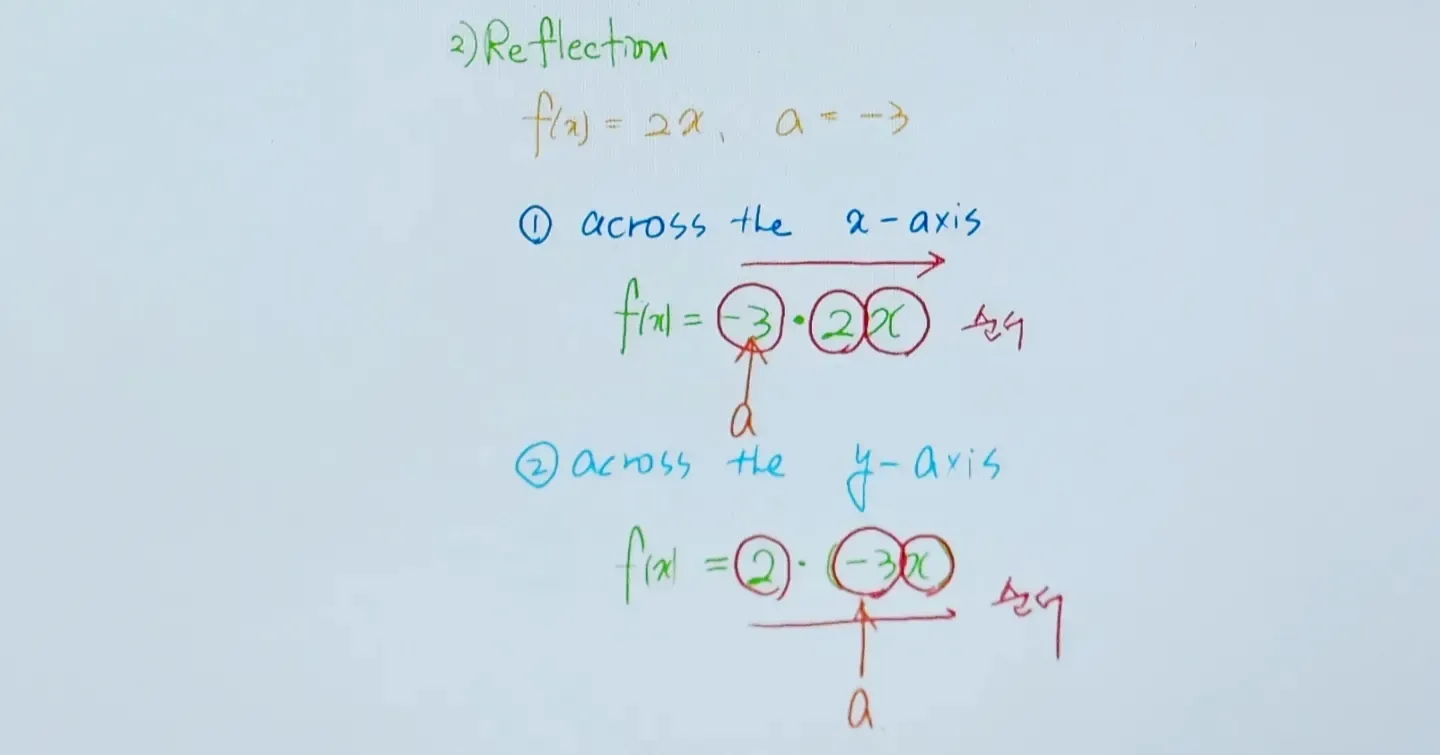 2) Reflection
f(x) = 2x, a = -3
① across the x-axis
f(x) = -3 · 2x 순서
a
② across the y-axis
f(x) = 2 · (-3x) 순서
a